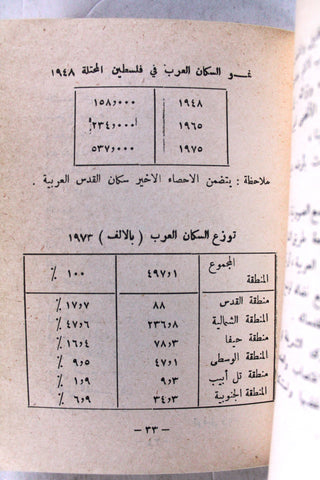 نمو السكان العرب في فلسطين المحتلة ١٩٤٨
١٩٤٨ ١٥٨٫٠٠٠
١٩٦٥ ٢٣٤٫٠٠٠
١٩٧٥ ٥٣٧٫٠٠٠
ملاحظة : يتضمن الاحصاء الاخير سكان القدس العربية .
توزع السكان العرب ( بالالف ) ١٩٧٣
المجموع
المنطقة ٤٩٧٫١ ١٠٠ ٪
منطقة القدس ٨٨ ١٧٫٧ ٪
المنطقة الشمالية ٢٣٦٫٨ ٤٧٫٦ ٪
منطقة حيفا ٧٨٫٣ ١٦٫٤ ٪
المنطقة الوسطى ٤٧٫١ ٩٫٥ ٪
منطقة تل أبيب ٩٫٣ ١٫٩ ٪
المنطقة الجنوبية ٣٤٫٣ ٦٫٩ ٪
— ٣٣ —